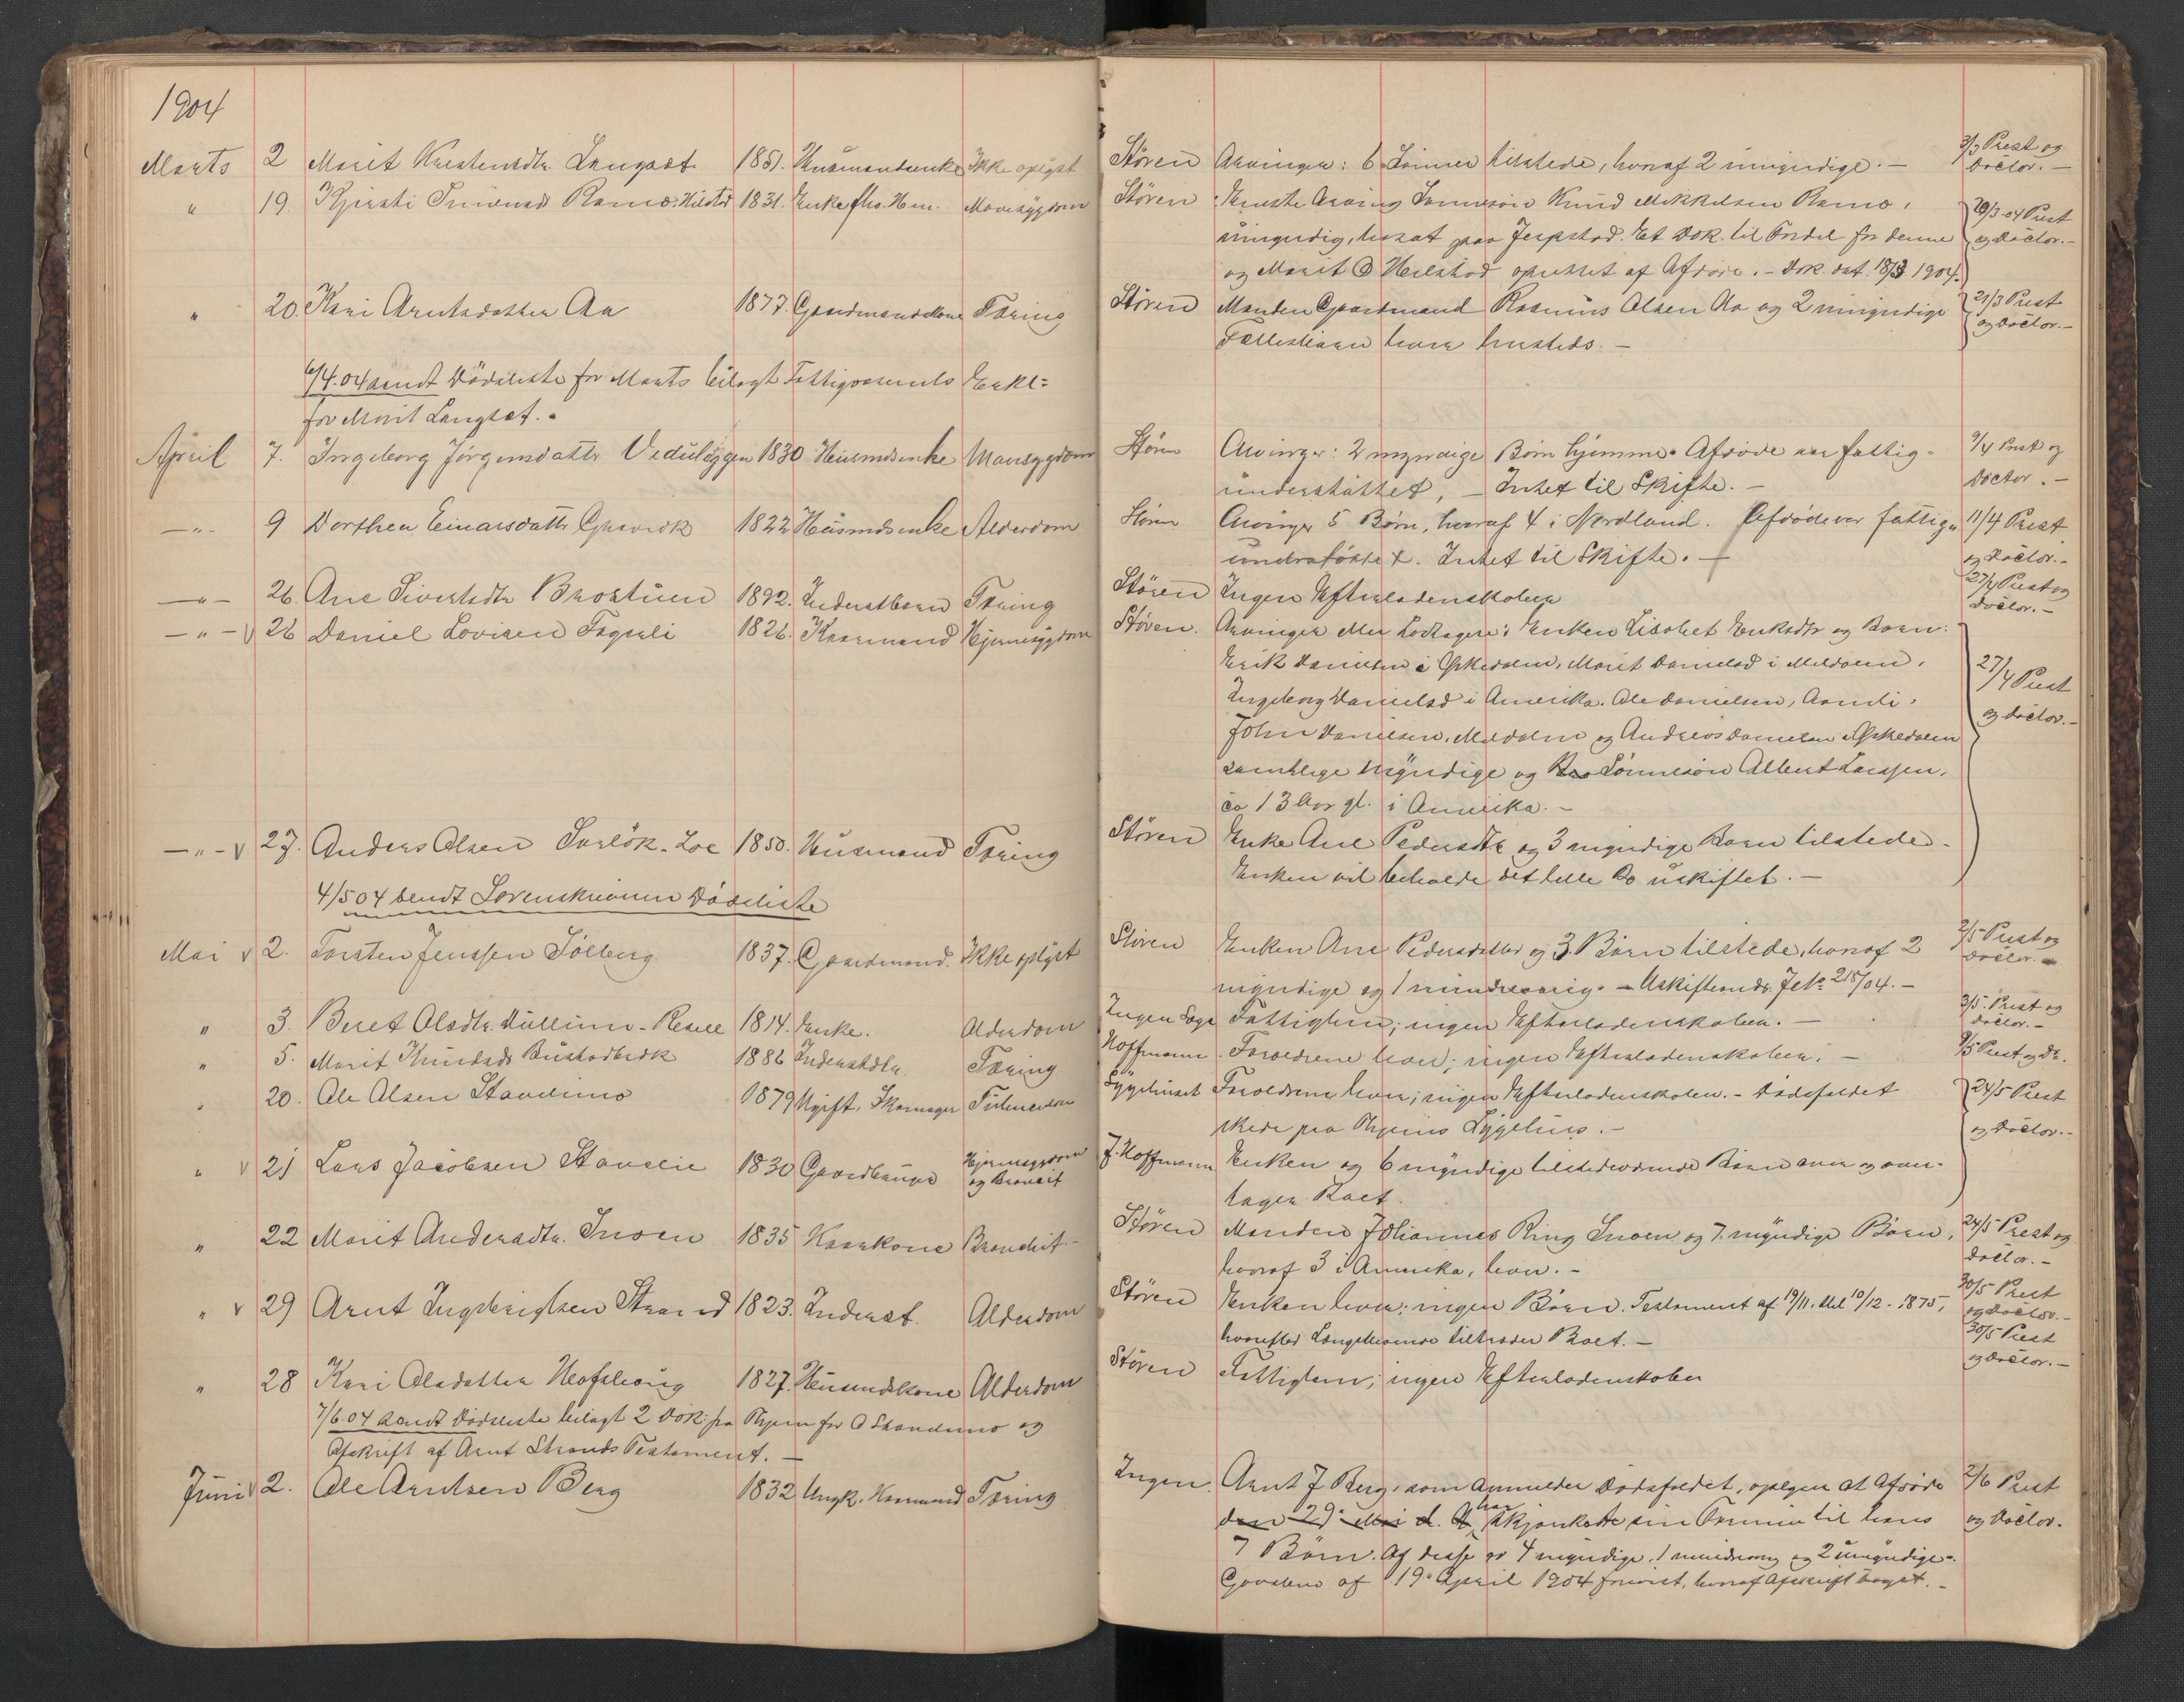 1904
Marts 2 Marit Karstensdtr. Langset 1851. Husmandsenke Ikke oplyst
" 19. Kjersti Simensd Ramo. Hilstad 1831. Enke Mavesygdom
" 20. Kari Arntsdatter Aa 1877. Gaardmandskone Tæring
6/4.04 sendt Dödsliste for Marts bilagt Fattigvæsenets Erkl:
for Marit Langset.
April 7. Ingeborg Jörgensdattr 1830 Husmdsenke Mavesygdom
—"— 9 Dorthea Einarsdattr 1822 Husmdsenke Alderdom
—"— 26. Ane Sivertsdtr Brostuen 1892. Inderstbarn Tæring
—"— v 26 Daniel Lovisen Fagerli 1826. Kaarmand Hjernesygdom
—"— v 27. Anders Olsen Sorlök. Loe 1850. Husmand Tæring
4/5 04 sendt Sorenskriveren Dödsliste
Mai v 2. Torsten Jenssen Solberg 1837. Gaardmand. Ikke oplyst
" 3. Beret Olsdtr. 1814. Enke. Alderdom
" 5. Marit Knudsd. 1886 Inderstdtr. Tæring
" 20. Ole Olsen Standmo 1879 Ugift. Skomager
" v 21 Lars Jacobsen 1830 Hjernesygdom
og Bronkit
" 22 Marit Andersdtr. Snoen 1835 Kaarkone Bronchit
" v 29 Arnt Ingebrigtsen Strand 1823. Inderst. Alderdom
" 28 Kari Olsdatter 1827. Husmdskone Alderdom
7/6 04 sendt Dödsliste bilagt 2 Dok: fra for O Standmo og
Afskrift af Arnt Strands Testament. —
Juni v 2. Ole Arntsen Berg 1832 Ungk. Kaarmand Tæring
Stören Arvinger: 6 Sönner tilstede, hvoraf 2 umyndige. — 3/3 Prest og
Doctor. —
Stören Eneste Arving Sønnesön Knud Mikkelsen Ramo,
umyndig, bosat paa Jespstad. Et Dok. til Fordel for denne
og Marit O Hilstad oprettet af Afdöde. — Dok. dat. 18/3 1904.
20/3-04 Prest
og Doctor. —
Stören Manden Gaardmand Rasmus Olsen Aa og 2 umyndige
Fællesbørn lever hersteds. —
21/3 Prest
og Doctor. —
Stören Arvinger: 2 myndige Börn hjemme. Afdöde var fattig-
understöttet, — Intet til Skifte. —
9/4 Prest og
Doctor. —
Stören Arvinger 5 Börn, hvoraf 4 i Nordland. Afdöde var fattig-
understöttet. Intet til Skifte. —
11/4 Prest
og Doctor. —
Stören Ingen Efterladenskaber 27/4 Prest og
Doctor. —
Stören. Arvinger eller Lodtagere: Enken Lisabet Eriksdtr og Barn:
Erik Danielsen i Orkedalen, Marit Danielsd i Meldalen,
Ingeborg Danielsd i Amerika. Ole Danielsen,
John Danielsen, Meldalen og Andreas Danielsen Orkedalen
samtlige myndige og Sönnesön Albert Larssen,
ca 13 Aar gl. i Amerika. —
27/4 Prest
og Doctor. —
Stören Enke Ane Pedersdtr og 3 myndige Barn tilstede.
Enken vil beholde det hele Bo uskiftet. —
Stören Enken Ane Pedersdatter og 3 Börn tilstede, hvoraf 2
myndige og 1 mindreaarig. — 04. —
2/5 Prest og
Doctor. —
Ingen Fattiglem; ingen Efterladenskaber. — 3/5. Prest og
Doctor. —
Hoffmann. Foreldrene lever; ingen Efterladenskaber. — Prest og Dr.
Sygehuset Foreldrene lever; ingen Efterladenskaber. — Dödsfaldet
skede paa Sygehus. —
24/5 Prest
og Doctor. —
J. Hoffmann Enken og 6 myndige tilstedeværende Börn
tager Boet.
Stören Manden Johannes Ring Snoen og 7 myndige Börn,
hvoraf 3 i Amerika, lever. —
24/5 Prest og
Doctor. —
Stören Enken lever; ingen Börn. Testament af 19/11. 10/12. 1875,
hvorefter Længstlevende tiltræder Boet. —
30/5 Prest
og Doctor. —
Stören Fattiglem; ingen Efterladenskaber
30/5 Prest
og Doctor. —
Ingen. Arnt J Berg, som anmelder Dödsfaldet, oplyser at Afdöde
den 29. Mai d. A. har skjænkede sin Formue til hans
7 Börn. Af disse er 4 myndige, 1 mindreaarig og 2 umyndige.
Gavebrev af 19. April 1904 forevist, hvoraf Afskrift taget. —
2/6 Prest
og Doctor.